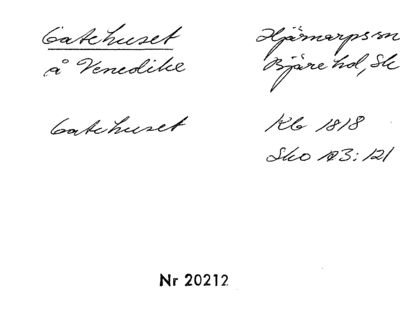 Gatehuset Hjärnarpssn
å Venedike Bjäre hd, Sk
Gatehuset Kb 1818
Sko A3:121
Nr 20212